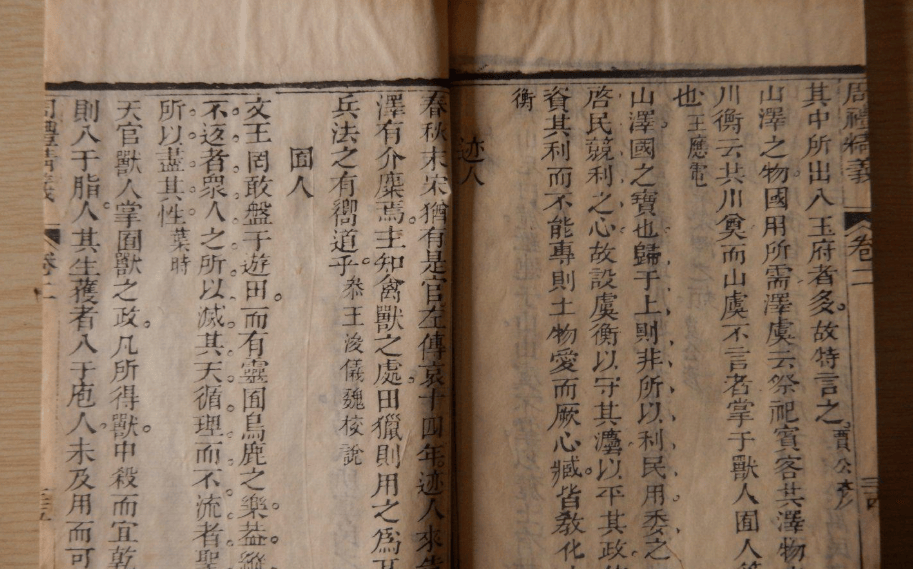 周禮精義 卷二
其中所出入玉府者多故特言之賈公彥
山澤之物國用所需澤虞云祭祀賓客共澤物
川衡云共川奠而山虞不言者掌于獸人囿人
也王應電
山澤國之寶也歸于上則非所以利民用委之
啓民競利之心故設虞衡以守其灋以平其政
資其利而不能專則土物愛而厥心臧皆敎化
衡
迹人
春秋末宋猶有是官左傳哀十四年迹人來告
澤有介麋焉主知禽獸之處田獵則用之爲
兵法之有嚮道乎叅王浚儀魏校說
囿人
文王罔敢盤于遊田而有靈囿鳥鹿之樂葢縱
不返者衆人之所以滅其天循理而不流者聖
所以盡其性葉時
天官獸人掌囿獸之政凡所得獸中殺而宜乾
則入于腊人其生獲者入于庖人未及用而可
周禮精義 卷二